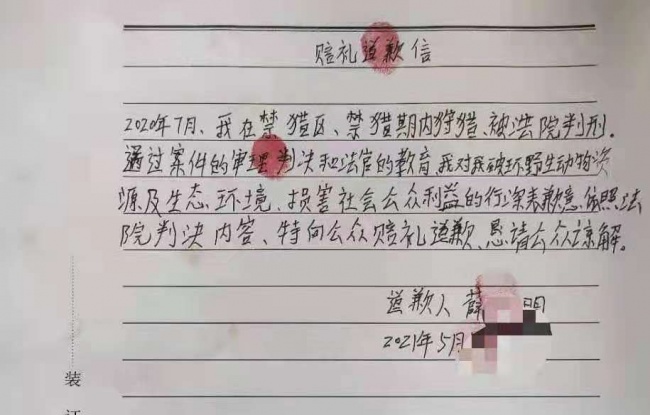 赔礼道歉信
2020年7月、我在禁猎区、禁猎期内狩猎、被法院判刑。
通过案件的审理判决和法官的教育、我对我破坏野生动物资
源及生态环境、损害社会公众利益的行深表歉意、依照法
院判决内容、特向公众赔礼道歉、恳请公众谅解。
道歉人 薛 明
2021年5月
装
订